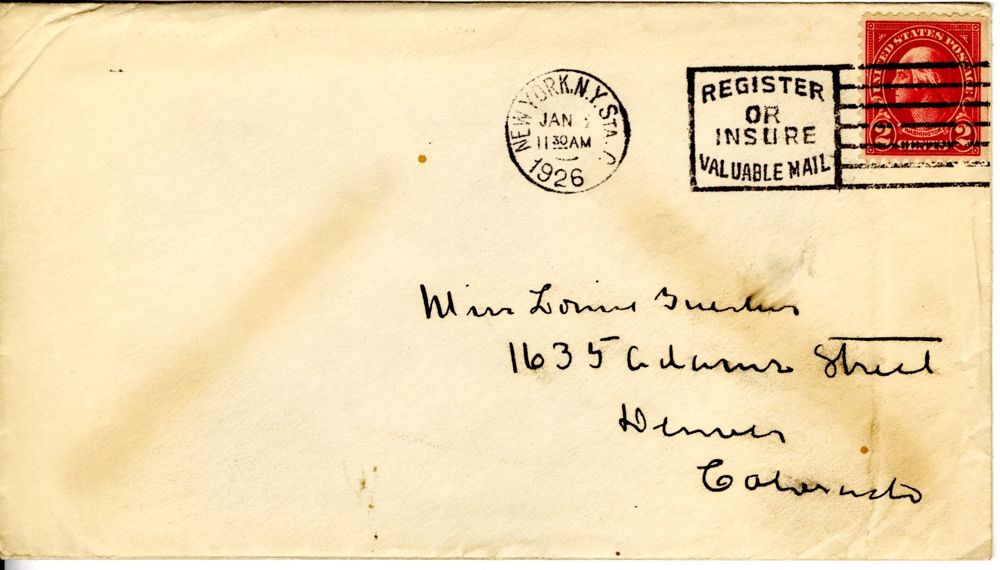 UNITED STATES POSTAGE
WASHINGTON
2 CENTS 2
NEW YORK, N.Y. STA. C
JAN 2
11 30 AM
1926
REGISTER
OR
INSURE
VALUABLE MAIL
Miss
1635 Adams Street
Denver
Colorado